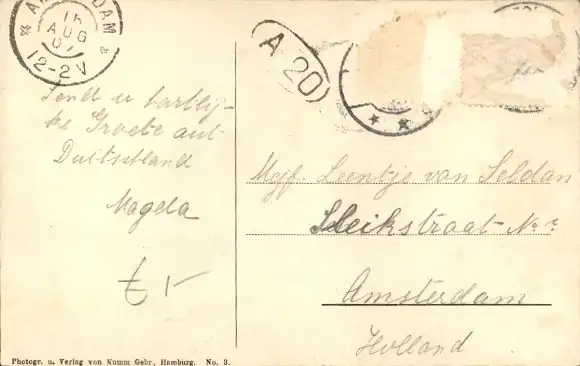 15
AUG
12-2V
A 20
Send u hartlij-
ke Groete aut
Duitschland
Magda
£ 1-
Mejf. Leentje van Seldan
Sleikstraat No 7
Amsterdam
Holland
Photogr. u. Verlag von Kumm Gebr., Hamburg. No. 3.